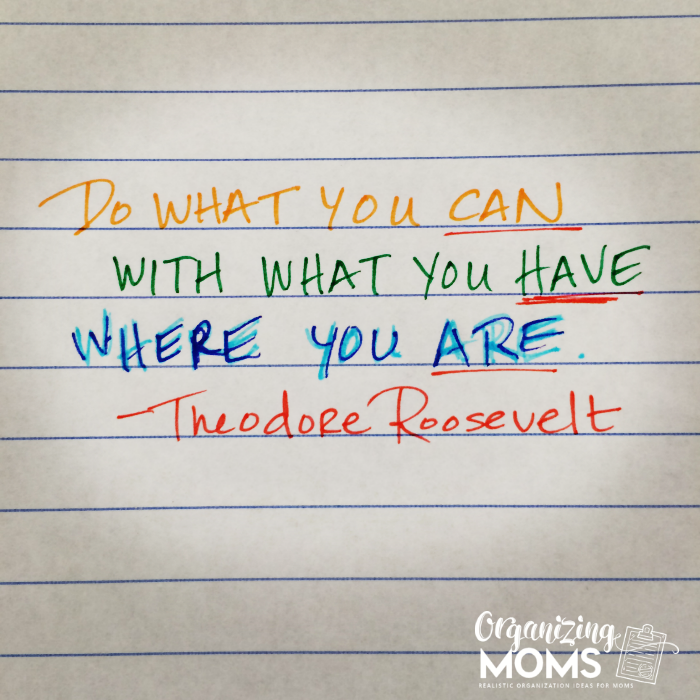 Do WHAT YOU CAN
WITH WHAT YOU HAVE
WHERE YOU ARE.
-Theodore Roosevelt
Organizing
MOMS
REALISTIC ORGANIZATION IDEAS FOR MOMS